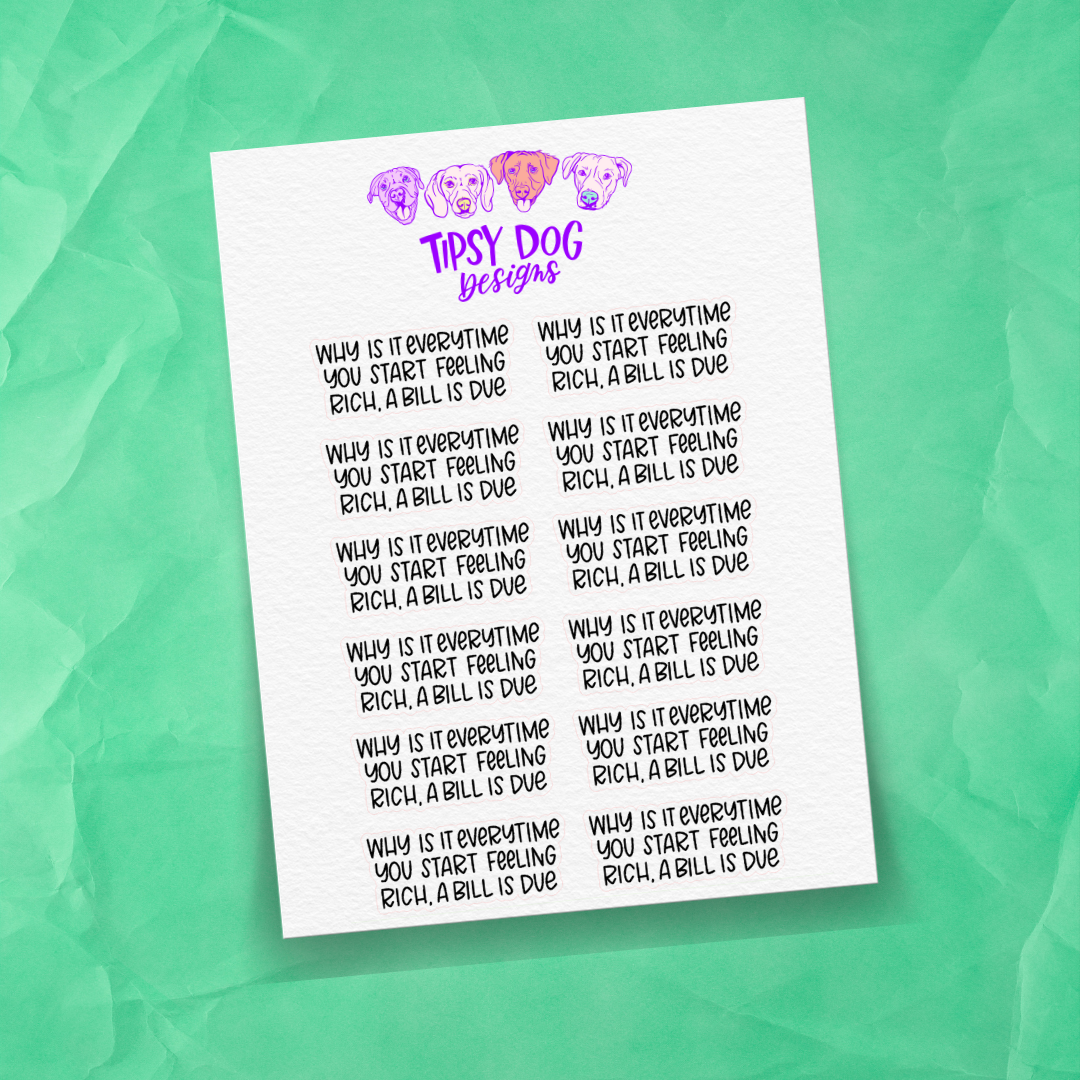 TIPSY DOG
Designs
WHY IS IT EVERYTIME
YOU START FEELING
RICH, A BILL IS DUE
WHY IS IT EVERYTIME
YOU START FEELING
RICH, A BILL IS DUE
WHY IS IT EVERYTIME
YOU START FEELING
RICH, A BILL IS DUE
WHY IS IT EVERYTIME
YOU START FEELING
RICH, A BILL IS DUE
WHY IS IT EVERYTIME
YOU START FEELING
RICH, A BILL IS DUE
WHY IS IT EVERYTIME
YOU START FEELING
RICH, A BILL IS DUE
WHY IS IT EVERYTIME
YOU START FEELING
RICH, A BILL IS DUE
WHY IS IT EVERYTIME
YOU START FEELING
RICH, A BILL IS DUE
WHY IS IT EVERYTIME
YOU START FEELING
RICH, A BILL IS DUE
WHY IS IT EVERYTIME
YOU START FEELING
RICH, A BILL IS DUE
WHY IS IT EVERYTIME
YOU START FEELING
RICH, A BILL IS DUE
WHY IS IT EVERYTIME
YOU START FEELING
RICH, A BILL IS DUE